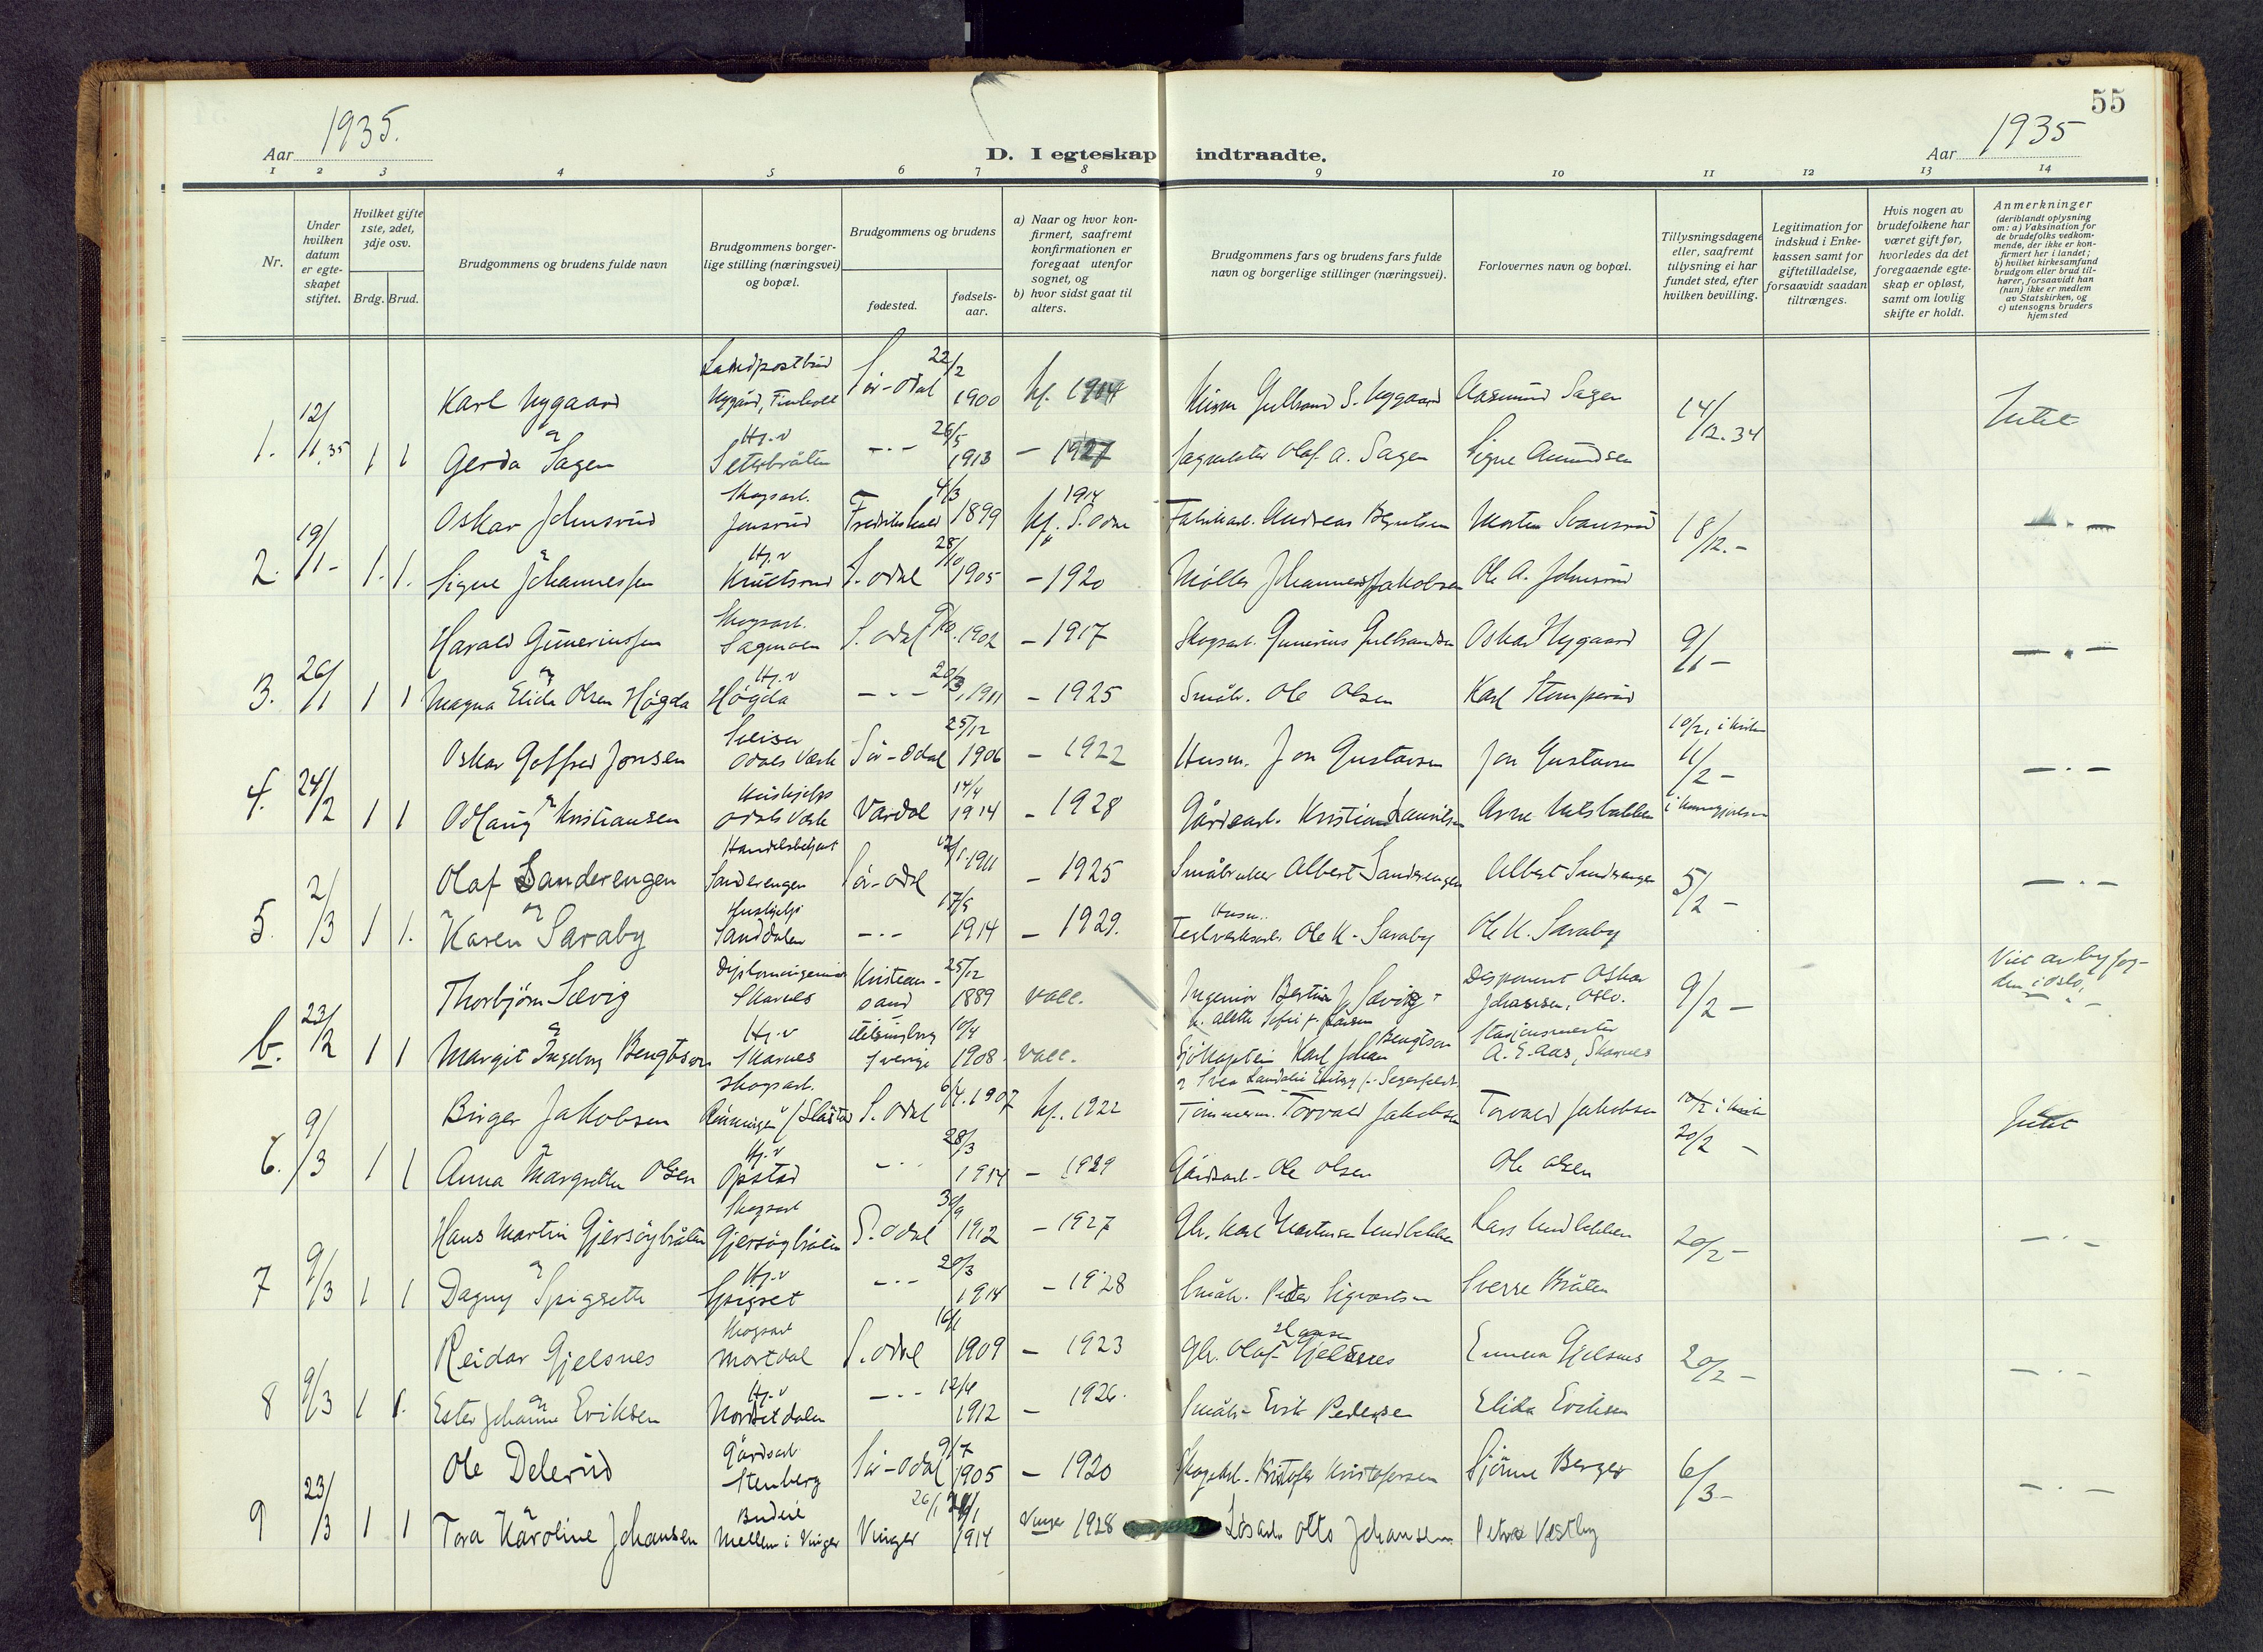 55
1935.
1935
Aar
D. I egteskap indtraadte.
Aar
1 2 3 4 5 6 7 8 9 10 11 12 13 14
Nr.
Under hvilken datum er egte-skapet stiftet.
Hvilket gifte 1ste, 2det, 3dje osv.
Brdg. Brud.
Brudgommens og brudens fulde navn
Brudgommens borger-lige stilling (næringsvei) og bopæl.
Brudgommens og brudens
fødested.
fødsels-aar.
a) Naar og hvor kon-firmert, saafremt konfirmationen er foregaat utenfor sognet, og
b) hvor sidst gaat til alters.
Brudgommens fars og brudens fars fulde navn og borgerlige stillinger (næringsvei).
Forlovernes navn og bopæl.
Tillysningsdagene eller, saafremt tillysning ei har fundet sted, efter hvilken bevilling.
Legitimation for indskud i Enke-kassen samt for giftetilladelse, forsaavidt saadan tiltrænges.
Hvis nogen av brudefolkene har været gift før, hvorledes da det foregaaende egte-skap er opløst, samt om lovlig skifte er holdt.
Anmerkninger
(deriblandt oplysning om: a) Vaksination for de brudefolks vedkom-mende, der ikke er kon-firmert her i landet;
b) hvilket kirkesamfund brudgom eller brud til-hører, forsaavidt han (hun) ikke er medlem av Statskirken, og
c) utensogns bruders hjemsted
Landpostbud 22/2
Karl Nygaard Nygård, Sør-Odal 1900 kf. 1914 Gulbrand S. Nygaard Aasmund Sagen 14/12.34 Intet
1. 12/1.35 1 1 og Hj.v 26/5
Gerda Sagen Seterbråten -.- 1913 - 1927 Olaf A. Sagen Signe Amundsen
Skogsarb. 4/3 1914
Oskar Johnsrud Jonsrud Fredrikshald 1899 kf. S. Odal Fabrikarb. Andreas Morten 18/12.- -.-
2. 19/1- 1. 1. og Hj.v 28/10
Signe Johannessen Knutsrud S. Odal 1905 - 1920 Møller Johannes Jakobsen Ole A. Johnsrud
Skogsarb.
Harald Gunerinssen Sagmoen S. Odal 9/10.1902 - 1917 Skogsarb. Gunerius Gulbrandsen Oskar Nygaard 9/1- -.-
3. 26/1 1 1 og Hj.v
Magna Elida Olsen Høgda Høgda -.- 1911 - 1925 Småbr. Ole Olsen Karl Stomperud
25/12 10/2, i kirken
Oskar Gotfred Jonsen Odals Verk Sør-Odal 1906 - 1922 Husm. Jon Gustavsen Jon Gustavsen 11/2- -.-
4. 24/2 1 1 og Hushjelp 14/4
Odlaug Kristiansen Odals Verk Vardal 1914 - 1928 Gårdsarb. Kristian Lauritsen Arne
Handelsbetjent
Olaf Sanderengen Sanderengen Sør-Odal 1911 - 1925 Småbruker Albert Sanderengen Albert Sanderengen 5/2- -.-
5. 2/3 1 1. og Hushjelp 17/5 Husm.
Karen Saraby Sanddalen -.- 1914 - 1929. Teglverksarb. Ole K. Saraby Ole K. Saraby
Diplomingeniør Kristian- 25/12 Viet av byfog-
Thorbjørn Sævig Skarnes sand 1889 vacc. Ingeniør Sævig Disponent Oskar Johansen, Oslo. 9/2- den i Oslo,
b. 23/2 1 1 og Hj.v 10/4
Margit Ingeborg Bengtson Skarnes Sverige 1908. vacc. Sjøkaptein Karl Johan Bengtson Stasjonsmester A. E. Aas, Skarnes
Skogsarb.
Birger Jakobsen S. Odal 6/4.1907 kf. 1922 Tømmerm. Torvald Jakobsen Torvald Jakobsen 20/2 - Intet
6. 9/3 1 1 og Hj.v 28/3
Anna Margrethe Olsen Opstad -.- 1914 - 1929 Gårdsarb. Ole Olsen Ole Olsen
Skogsarb 30/9
Hans Martin Gjersøybråten Gjersøybråten S. Odal 1912 - 1927 Gbr. Karl Martinsen Lundbekken Lars Lundbekken 20/2- -.-
7 9/3 1 1 og Hj.v 20/3
Dagny Spigseth Spigset -.- 1914 - 1928 Småbr. Peder Sigvartsen Sverre Bråten
Skogsarb 16/1 Hansen
Reidar Gjelsnes Mortdal S. Odal 1909 - 1923 Gbr. Olaf Gjelsnes Emma Gjelsnes 20/2- -.-
8 9/3 1 1. og Hj.v
Ester Johanne Eriksen -.- 1912 - 1926. Småbr. Erik Pedersen Elida Eriksen
Gårdsarb. 9/7
Ole Delerud Stenberg Sør-Odal 1905 - 1920 Skogsarb. Kristofer Kristofersen Berger 6/3- -.-
9 23/3 1 1 og Budeie 26/1
Tora Karoline Johansen Mellem i Vinger Vinger 1914 Vinger 1928 Løsarb. Otto Johansen Petra Vestby